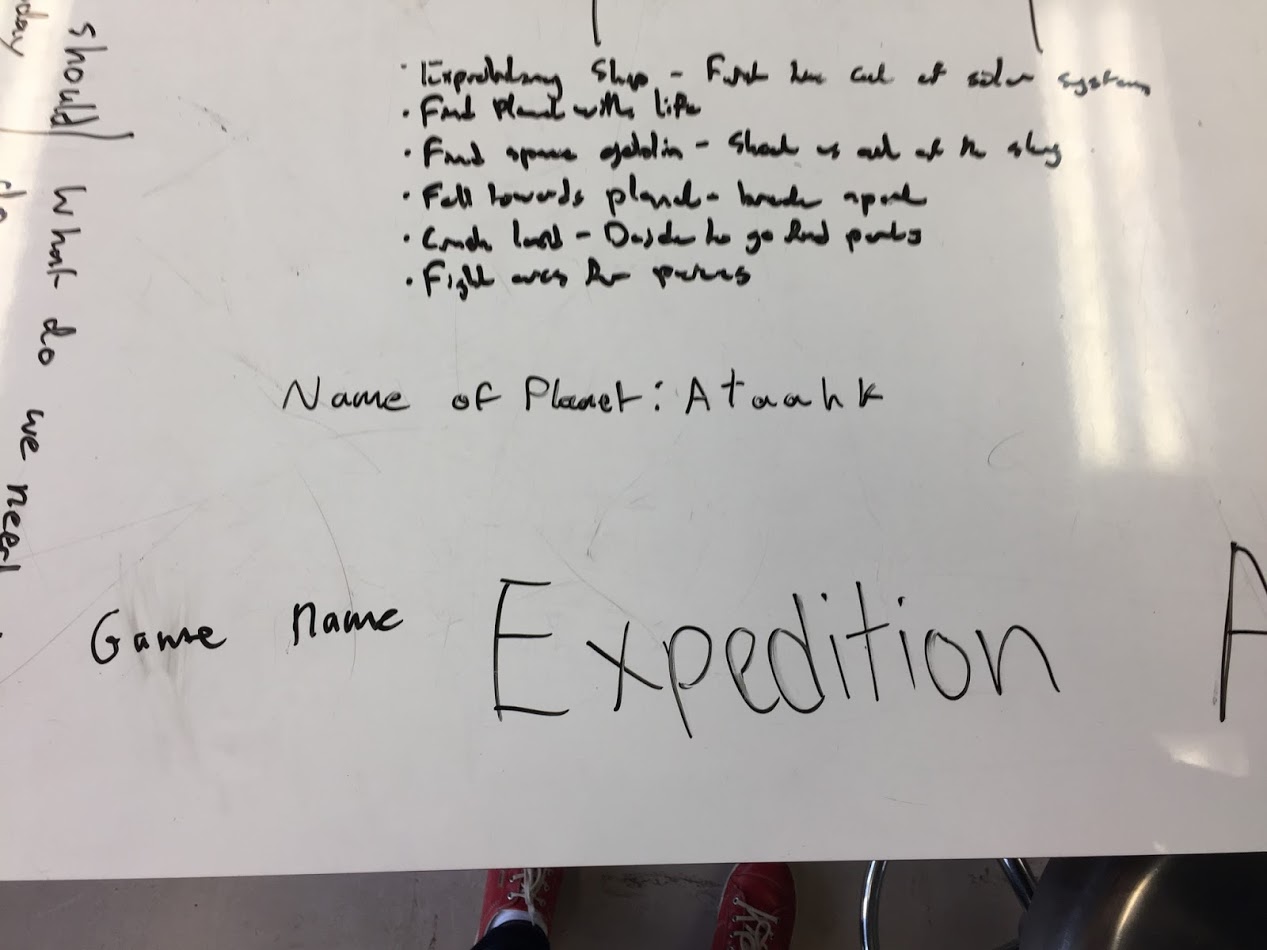 should) What do we need
day
do
• Exploratory Ship - First time out of solar system
• Find Planet with life
• Find space goblin - Shoot us out of the sky
• Fall towards planet - break apart
• Crash land - Decide to go find parts
• Fight over the pieces
Name of Planet: Ataahk
Game name Expedition A